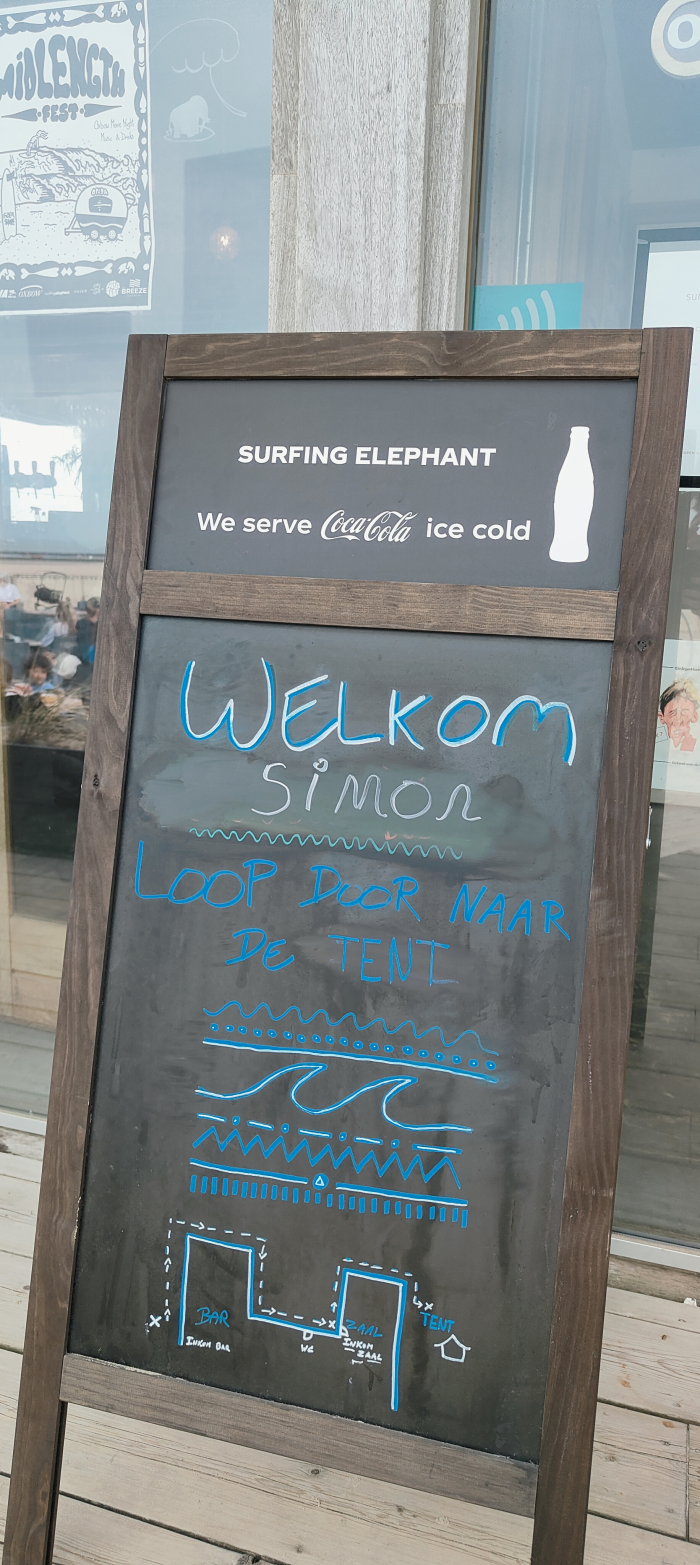 MIDLENGTH
FEST
OXBOW
BREEZE
SURFING ELEPHANT
We serve Coca-Cola ice cold
WELKOM
SIMON
LOOP DOOR NAAR
DE TENT
BAR
INKOM BAR
WC
ZAAL
INKOM
ZAAL
TENT